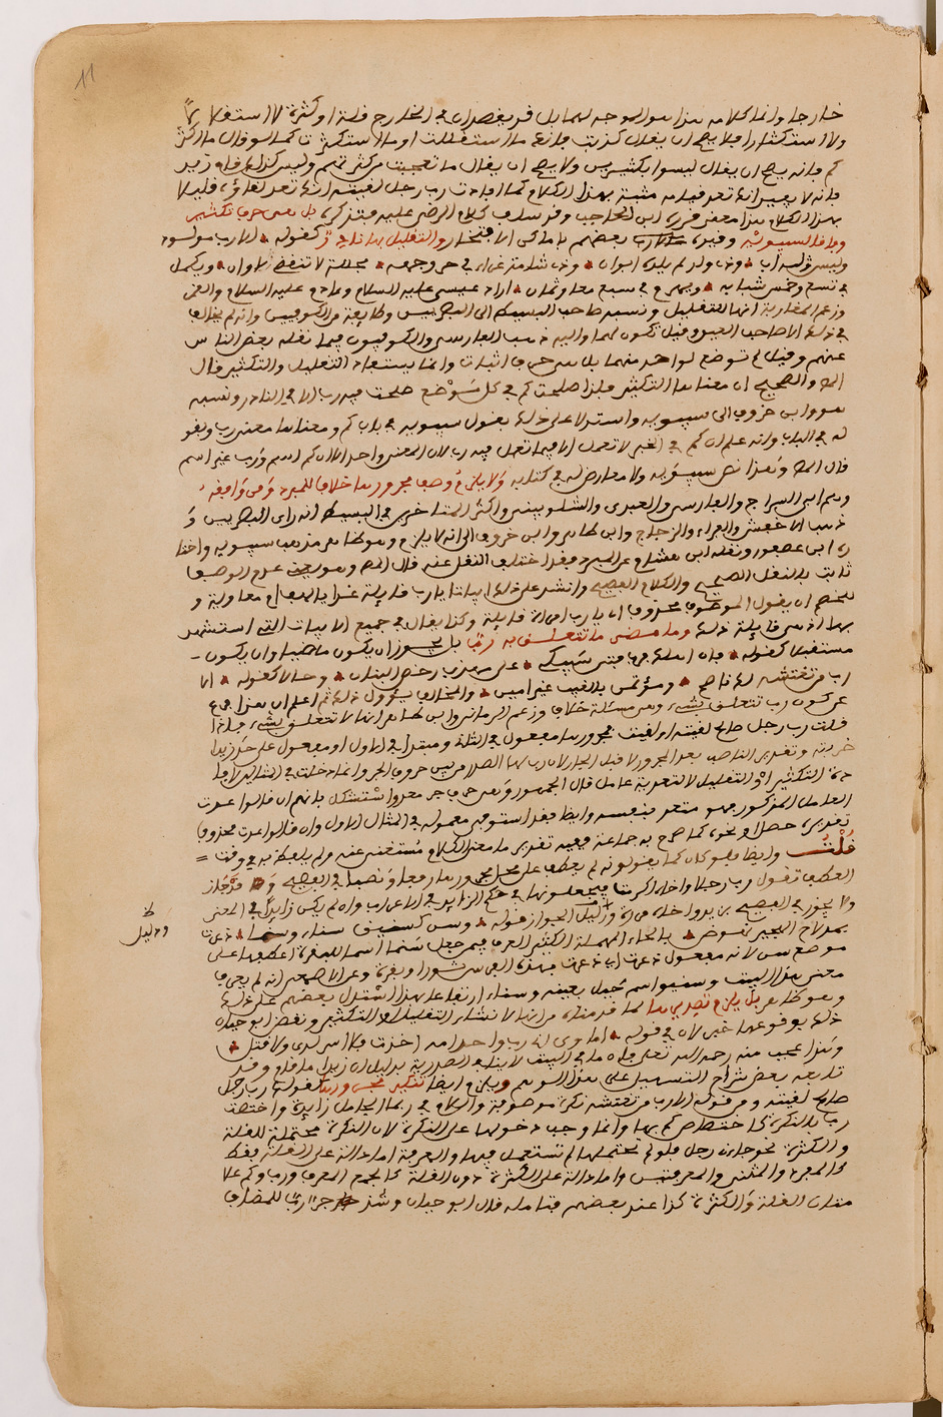 11
خارجا وانما كلامه هذا هو الموجه لهما بل قد يقصدان في الخارج قلة او كثرة لا استقلالا
ولا استكثارا فلا يصح ان يقال كذبت فانك ما استقللت او ما استكثرت كما سوقال ما اكثر
كم فانه يصح ان يقال ليسوا بكثيرين ولا يصح ان يقال ما تعجبت من كثرتهم وليس كذلك قام زيد
فانه لا يصير انك تعد قيامه مثبته بهذا الكلام كما افادت رب رجل لقيته انك تعد لقاؤه قليلا
بهذا الكلام هذا معنى قرره ابن الحاجب وقد سلف كلام الرضي عليه فتذكر بل هي حرف تكثير
وفاقا لسيبويه وقيده بعضهم باماكن الافتخار والتقليل بها نادر كقوله الا رب مولود
وليس له اب وذي ولد لم يلده ابوان وذي شامة غراء في حر وجهه مجللة لا تنقضي لاوان ويكمل
في تسع وخمس شبابه ويهرم في سبع معا وثمان اراد عيسى عليه السلام وءادم عليه السلام والقمر
وزعم المغاربة انها للتقليل ونسبه صاحب البسيط الى البصريين وطايفة من الكوفيين وانه لم يخالف
في ذلك الا صاحب العين وقيل تكون لهما واليه ذهب الفارسي والكوفيون فيما نقله بعض الناس
عنهم وقيل لم توضع لواحد منهما بل هي حرف اثبات وانما يستفاد التقليل والتكثير قال
المص والصحيح ان معناها التكثير فلذا صلحت كم في كل موضع صلحت فيه رب الا في النادر ونسبه
هو وابن خروف الى سيبويه واستدلا على ذلك بقول سيبويه في باب كم ومعناها معنى رب وبقو
له في الباب وانه علم ان كم في الخبر لا تعمل الا فيما تعمل فيه رب لان المعنى واحد الا ان كم اسم ورب غير اسم
قال المص وهذا نص سيبويه ولا معارض له في كتابه ولا يلزم وصف مجرورها خلافا للمبرد ومن وافقه
وهم ابن السراج والفارسي والعبدي والشلوبين واكثر المتاخرين في البسيط انه راي البصريين و
ذهب الاخفش والفراء والزجاج وابن طاهر وابن خروف الى انه لا يلزم وهو ظاهر مذهب سيبويه واختا
ره ابن عصفور ونقله ابن هشام عن المبرد فقد اختلف النقل عنه قال المص وهو عدم الوصف
ثابت بالنقل الصحيح والكلام الفصيح وانشد على ذلك ابياتا يا رب قايلة غدا يا لهف ام معاوية و
للخصم ان يقول الموصوف محذوف اي يا رب امراة قايلة وكذا يقال في جميع الابيات التي استشهد
بها اذ هي قايلة ذلك وما مضى ما تتعلق به رب بل يجوز ان يكون ماضيا وان يكون
مستقبلا كقوله فان اهلك فرب فتى سيبكي علي مهذب رخص البنان وحالا كقوله الا
رب من تغتشه لك ناصح ومؤتمن بالغيب غير امين والمخالف يؤول ذلك ثم اعلم ان هذا فرع
عن كون رب تتعلق بشيء وهي مسئلة خلاف وزعم الرماني وابن طاهر انها لا تتعلق بشيء فاذا
قلت رب رجل صالح لقيته او لقيت فمجرورها مفعول في الثاني ومبتدا في الاول او مفعول على حد زيدا
ضربته وتقدير الناصب بعد المجرور لا قبل الجار لان رب لها الصدر من بين حروف الجر وانما دخلت في المثالين لافا
دة التكثير او التقليل لا لتعدية عامل قال الجمهور وهي حرف جر معد واستشكل بانهم ان قالوا عدت
العامل المذكور فهو متعد بنفسه وايضا فقد استوفى معموله في المثال الاول وان قالوا عدت محذوفا
تقديره حصل او نحوه كما صرح به جماعة ففيه تقدير ما معنى الكلام مستغنى عنه ولم يلفظ به في وقت
قلت وايضا فلو كان كما يقولونه لم يعطف على محل مجرورها رفعا ونصبا في الفصيح
العطف تقول رب رجل واخاه اكرمت فيجعلونها في حكم الزايد في الاعراب وان لم يكن زايدا في المعنى
ولا يجوز في الفصيح بزيد واخاه مررت ودليل الجواز قوله وسن كسنيق سناء وسنما ذعرت
بمدلاج الهجير نهوض بالحاء المهملة الكثير العرق فيمن جعل سنما اسما للبقرة اعطفها على
موضع سن لانه مفعول ذعرت اي ذعرت بهذا الفرس ثورا وبقرة وعن الاصمعي انه لم يعرف
معنى هذا البيت وسنيق اسم جبل بعينه وسناء ارتفاعا بهذا استدل بعضهم على ذلك
وهو ظاهر بل يلزم تصديرها لما قدمناه من انها لانشاء التقليل او التكثير ونقض ابو حيان
ذلك بوقوعها خبر لان في قوله اماوي انه رب واحد امه اخذت فلا اسر لدي ولا قتل
وهذا عجيب منه رحمه الله تعلى فان ما في البيت لا ينافي الصدرية بدليل ان زيدا ما قام وقد
تابعه بعض شراح التسهيل على هذا السهو ويلزم ايضا تنكير مجرورها كقولك رب رجل
صالح لقيته ومن قوله الا رب من تغتشه نكرة موصوفة والكلام في ربما الجامل زايدة واختصت
رب بالنكرة كاختصاص كم بها وانما وجب دخولها على النكرة لان النكرة محتملة للقلة
والكثرة نحو جاءني رجل فلو لم تحتملهما لم تستعمل فيها والمعرفة اما دالة على القلة فقط
كالمفرد والمثنى والمعرفتين واما دالة على الكثرة دون القلة كالجمع المعرف ورب وكم علا
متان القلة والكثرة كذا عند بعضهم فتامله قال ابو حيان وشذ جر رب للمضاف
ودليل